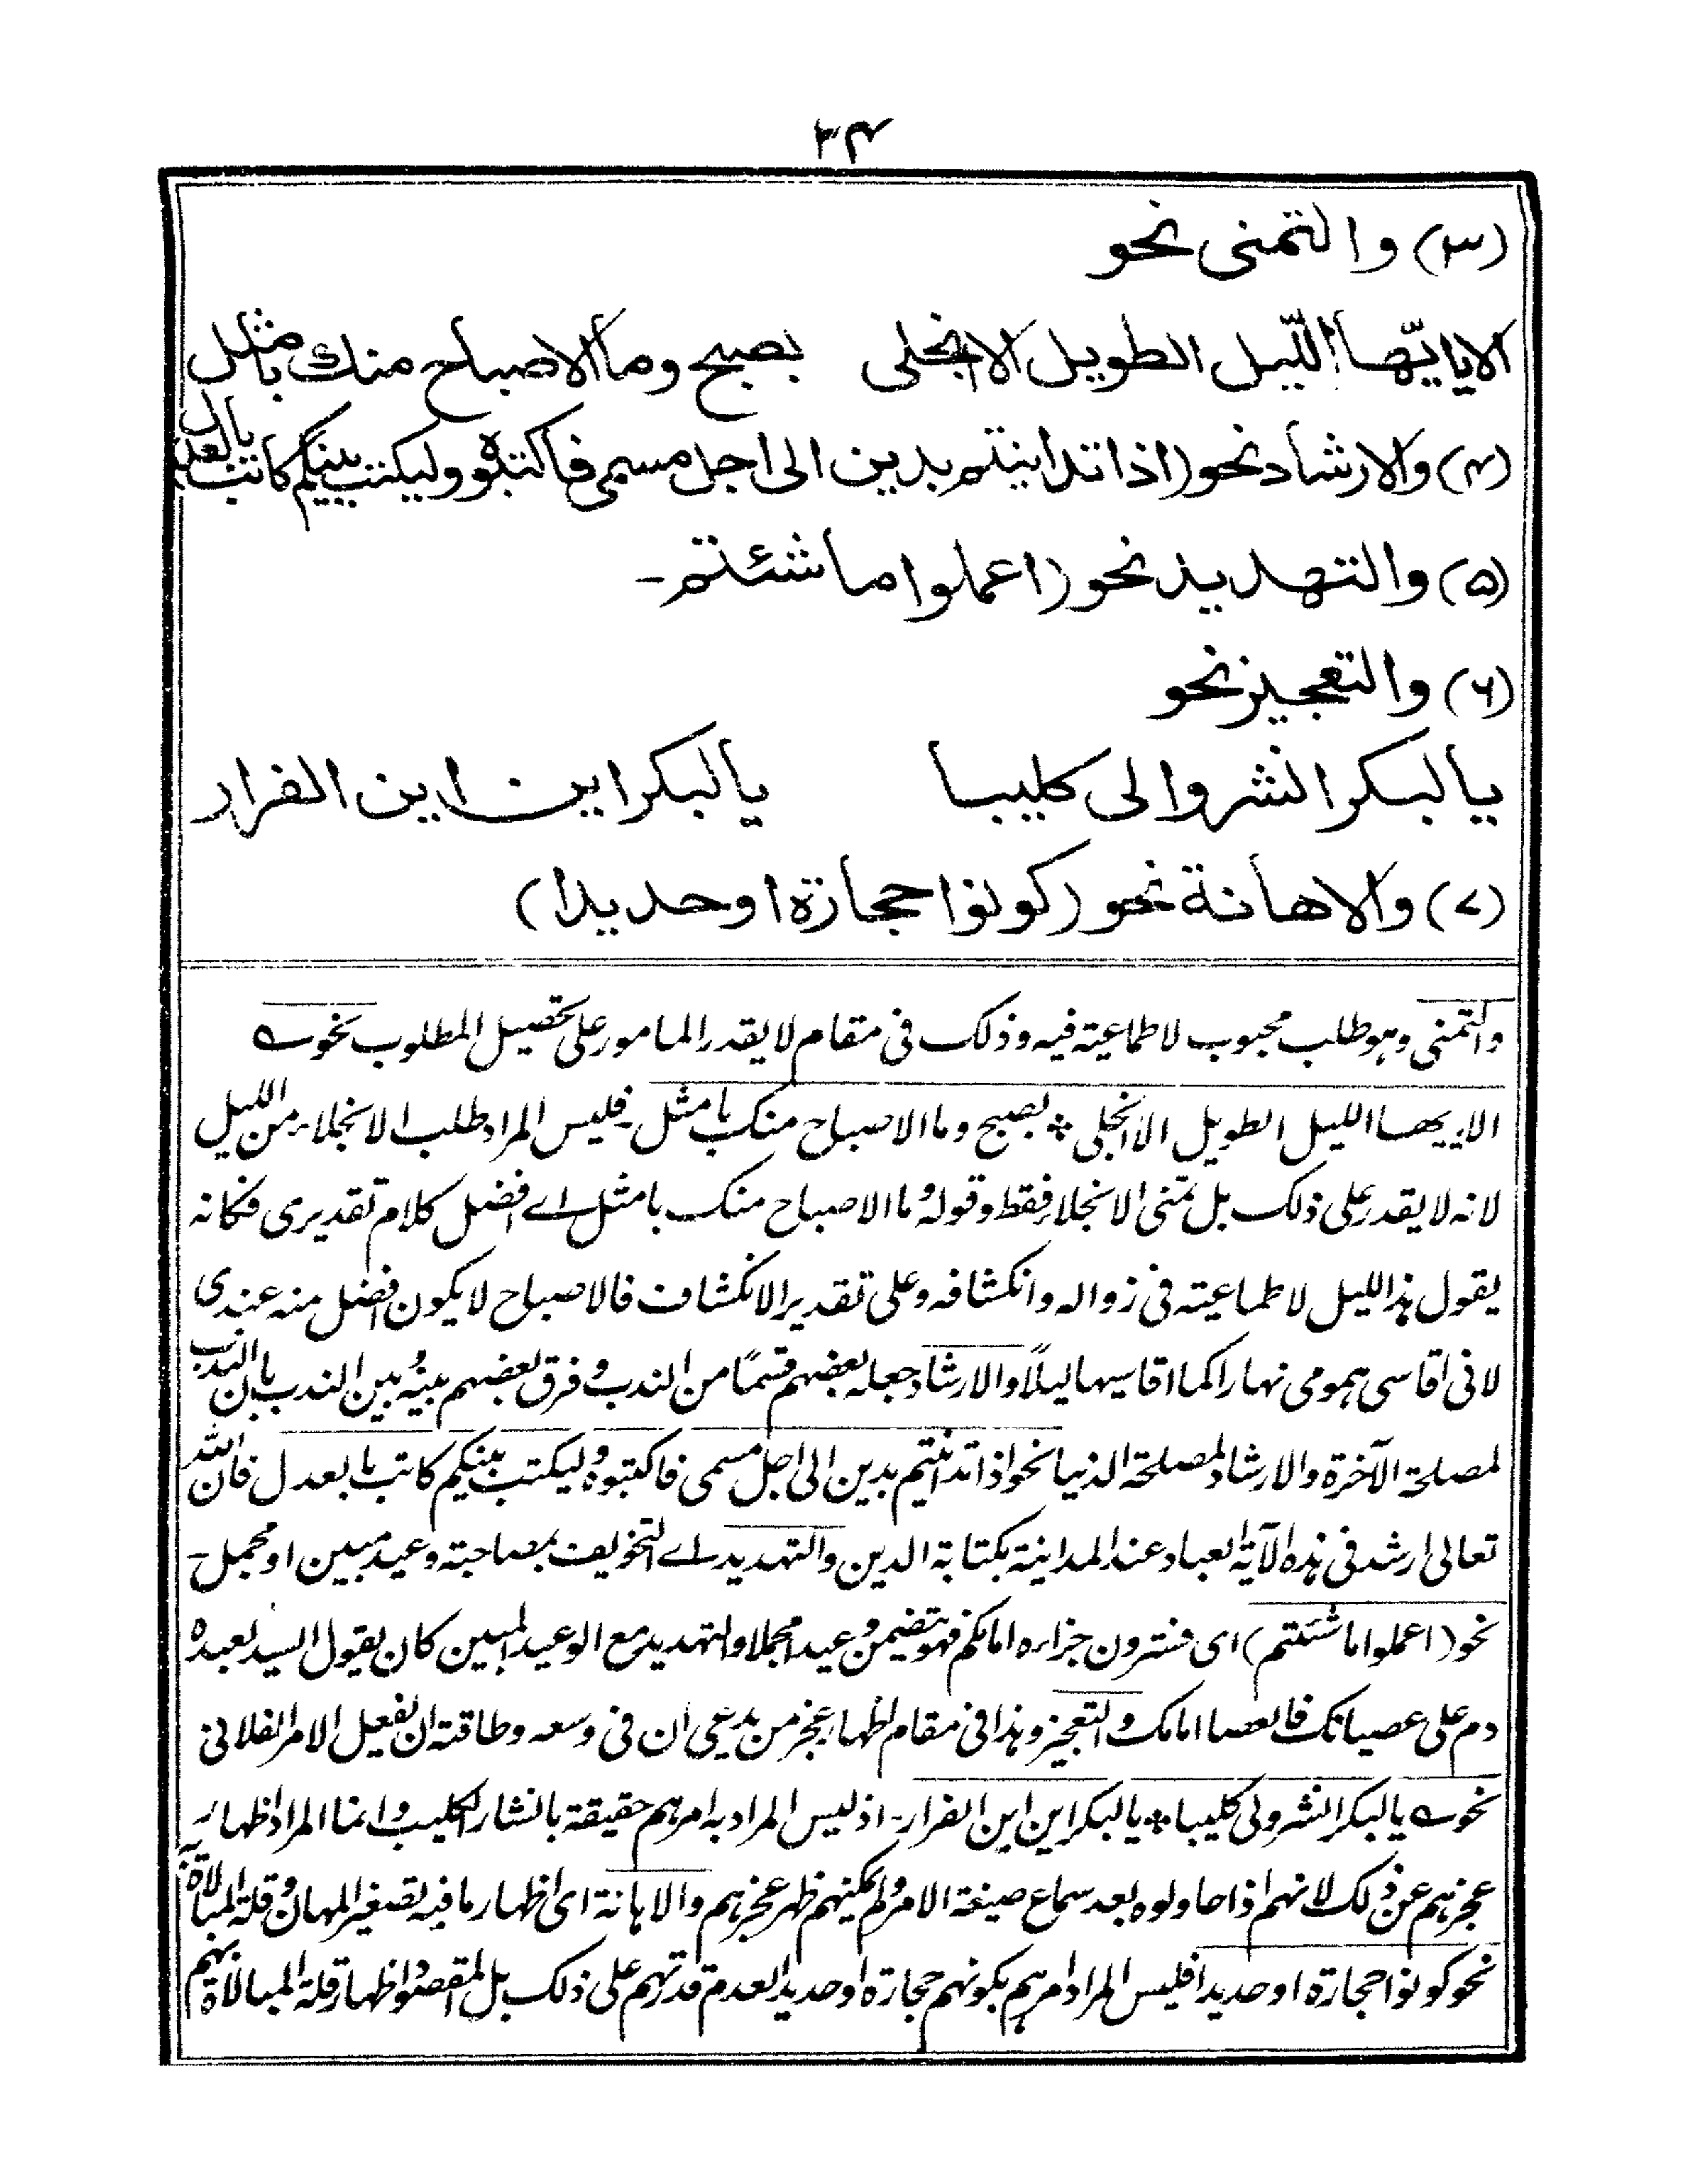 ٢٤
(٣) والتمنى نحو
الا يا ايّها اللّيل الطويل الا انجلى بصبح وما الاصباح منك بامثل
(٤) والارشاد نحو (اذا تداينتم بدين الى اجل مسمى فاكتبوه وليكتب بينكم كاتب بالعدل
(٥) والتهديد نحو (اعملوا ما شئتم ـ
(٦) والتعجيز نحو
يا لبكر انشروا لى كليبا يا لبكر اين اين الفرار
(٧) والاهانة نحو (كونوا حجارة او حديدا)
والتمنى وهو طلب محبوب لا طماعيته فيه وذلك فى مقام لا يقدر المامور على تحصيل المطلوب نحو ؎
الا ايها الليل الطويل الا انجلى * بصبح وما الاصباح منك بامثل ـ فليس المراد طلب الانجلاء من الليل
لانه لا يقدر على ذلك بل تمنى الانجلاء فقط وقوله وما الاصباح منك بامثل اے افضل كلام تقديرى فكانه
يقول هذا الليل لا طماعيته فى زواله وانكشافه وعلى تقدير الانكشاف فالاصباح لا يكون افضل منه عندى
لانى اقاسى همومى نهارا كما اقاسيها ليلاً والارشاد جعله بعضهم قسمًا من الندب وفرق بعضهم بينه وبين الندب بان الندب
لمصلحة الآخرة والارشاد لمصلحة الدنيا نحو اذا تداينتم بدين الى اجل مسمى فاكتبوه وليكتب بينكم كاتب بالعدل فان الله
تعالى ارشد فى هذه الآية العباد عند المداينة بكتابة الدين والتهديد اے التخويف بمصاحبته وعيد مبين او مجمل ـ
نحو (اعملوا ما شئتم) اى فسترون جزاءه امامكم فهو يتضمن وعيدا مجملا والتهديد مع الوعيد المبين كان يقول السيد لعبده
دم على عصيانك فالعصا امامك والتعجيز وهذا فى مقام اظهار عجز من يدعى ان فى وسعه وطاقته ان يفعل الامر الفلانى
نحو ؎ يا لبكر انشروا لى كليبا * يا لبكر اين اين الفرار ـ اذ ليس المراد به امرهم حقيقة بانشار لكليب وانما المراد اظهار
عجزهم عن ذلك لانهم اذا حاولوه بعد سماع صيغة الامر ولم يمكنهم ظهر عجزهم والاهانة اى اظهار ما فيه تصغير المهان وقلة المبالاة به
نحو كونوا حجارة او حديدا فليس المراد امرهم بكونهم حجارة او حديدا لعدم قدرتهم على ذلك بل المقصود اظهار قلة المبالاة بهم